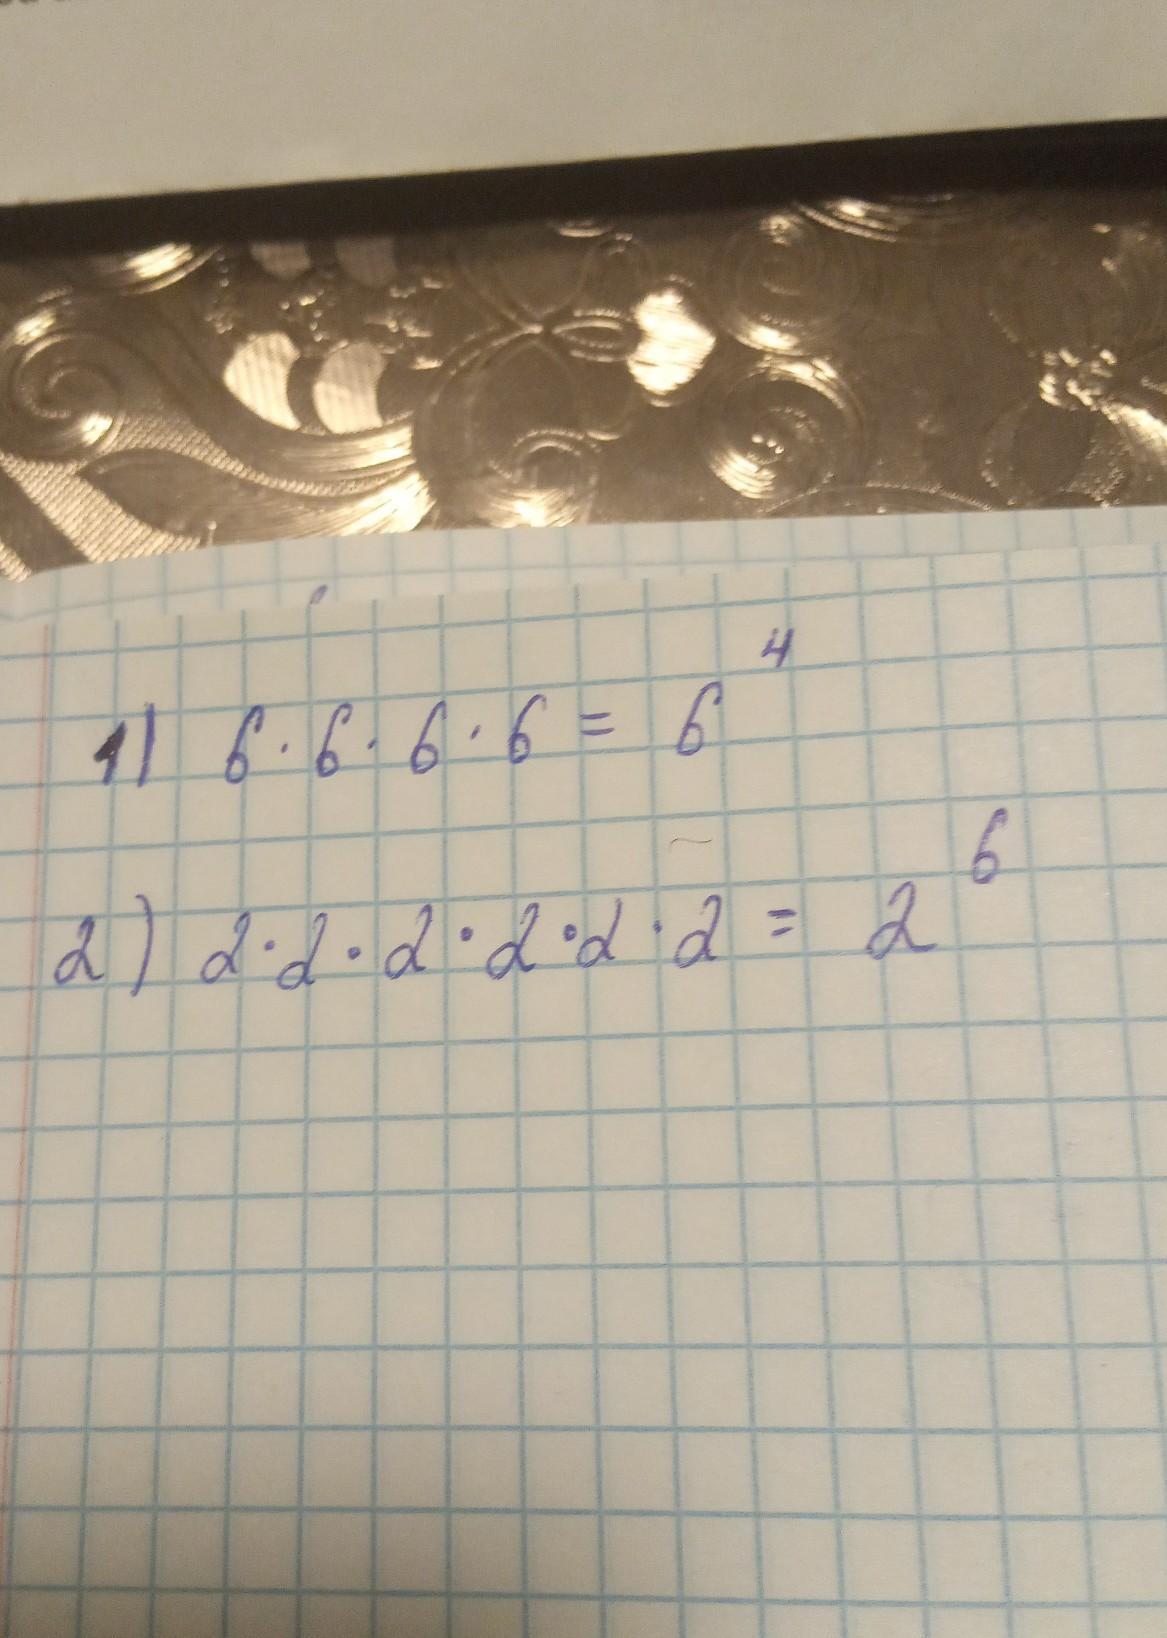 1) 6 · 6 · 6 · 6 = 6⁴
2) 2 · 2 · 2 · 2 · 2 · 2 = 2⁶